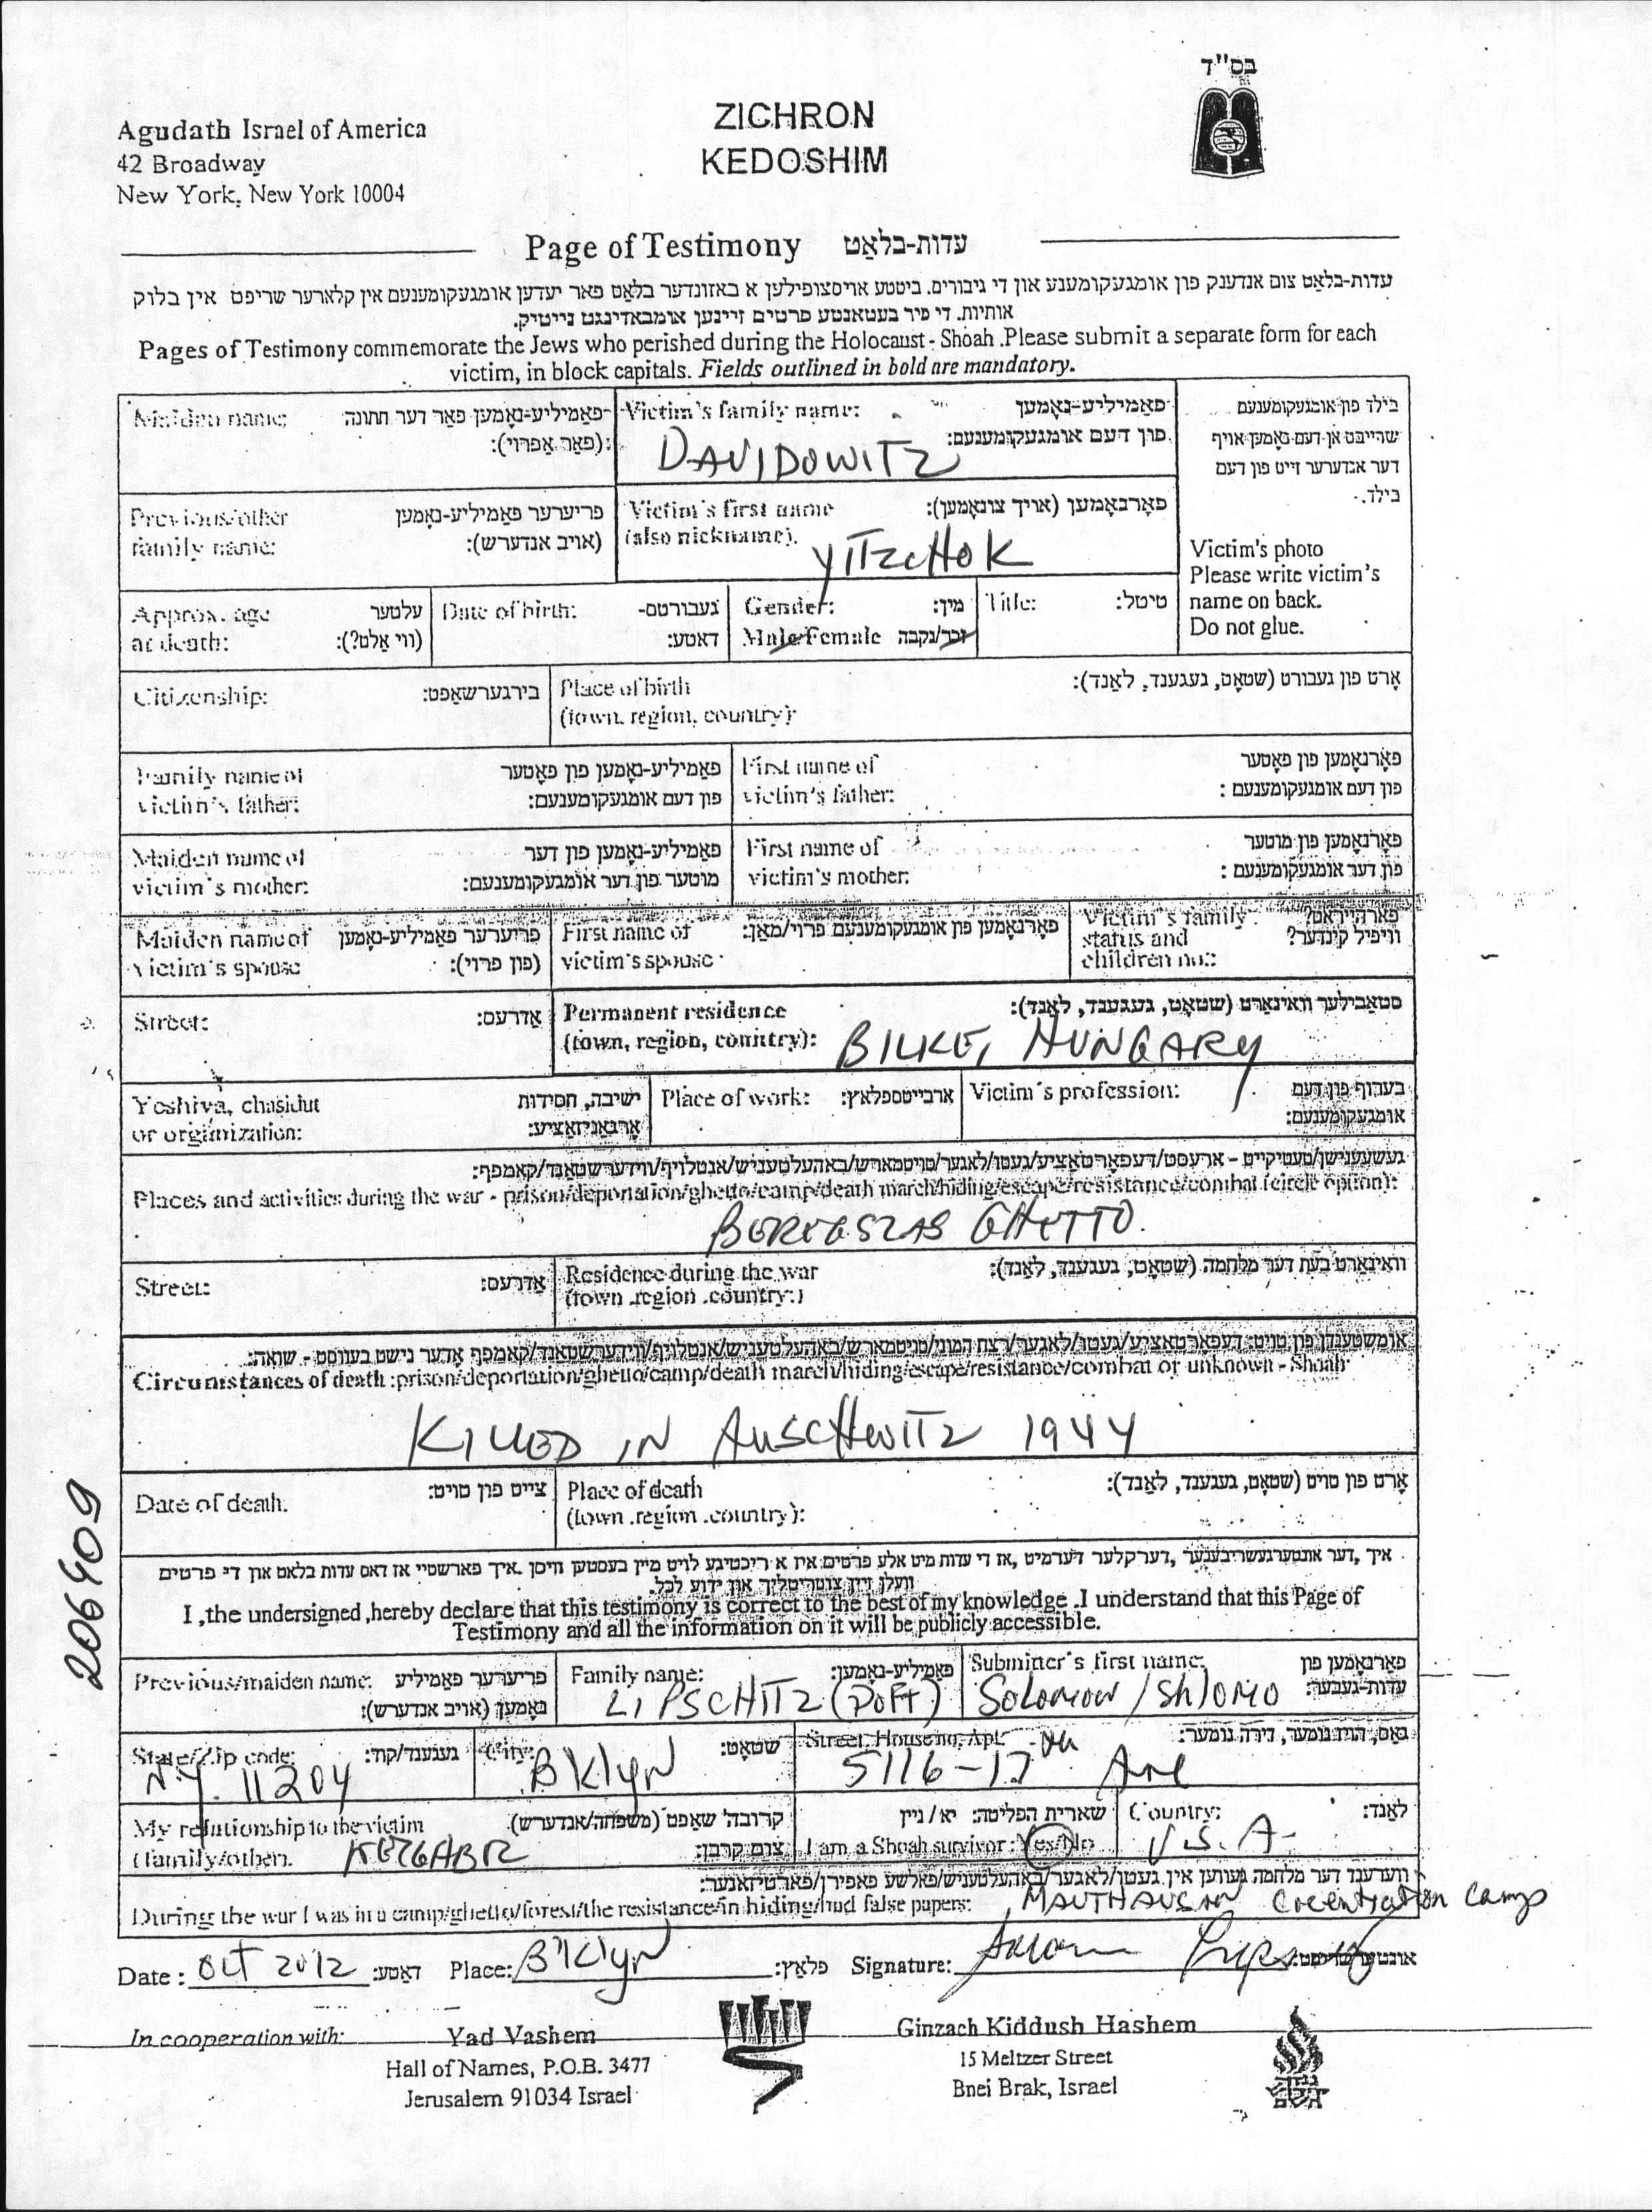 בס"ד
Agudath Israel of America
42 Broadway
New York, New York 10004
ZICHRON
KEDOSHIM
Page of Testimony עדות-בלאַט
עדות-בלאַט צום אנדענק פון אומגעקומענע און די גיבורים. ביטטע אויסצופילען א באזונדער בלאַט פאר יעדען אומגעקומענעם אין קלארער שריפט אין בלוק
אותיות. די פיר בעטאנטע פרטים זיינען אומבאדינגט נייטיק.
Pages of Testimony commemorate the Jews who perished during the Holocaust - Shoah .Please submit a separate form for each
victim, in block capitals. Fields outlined in bold are mandatory.
Maiden name: פאַמיליע-נאָמען פאַר דער חתונה
(פאַר אַפרוי):
Victim's family name: פאַמיליע-נאָמען
פון דעם אומגעקומענעם:
DAVIDOWITZ
בילד פון אומגעקומענעם
שרייבט אן דעם נאָמען אויף
דער אנדערער זייט פון דעם
בילד.
Victim's photo
Please write victim's
name on back.
Do not glue.
Previous/other פריערער פאַמיליע-נאָמען
family name: (אויב אנדערש):
Victim's first name פאָרנאָמען (אויך צונאָמען):
(also nickname).
YITZCHOK
Approx. age עלטער
at death: (ווי אַלט?):
Date of birth: געבורטס-
דאַטע:
Gender: מין:
Male/Female זכר/נקבה
Title: טיטל:
Citizenship: בירגערשאַפט:
Place of birth אָרט פון געבורט (שטאָט, געגענד, לאַנד):
(town, region, country):
Family name of פאַמיליע-נאָמען פון פאָטער
victim's father: פון דעם אומגעקומענעם:
First name of פאָרנאָמען פון פאָטער
victim's father: פון דעם אומגעקומענעם :
Maiden name of פאַמיליע-נאָמען פון דער
victim's mother: מוטער פון דער אומגעקומענעם:
First name of פאָרנאָמען פון מוטער
victim's mother: פון דער אומגעקומענעם :
Maiden name of פריערער פאַמיליע-נאָמען
victim's spouse (פון פרוי):
First name of פאָרנאָמען פון אומגעקומענעם פרוי/מאַן:
victim's spouse
Victim's family פארהייראט?
status and וויפיל קינדער?
children no.:
Street: אַדרעס:
Permanent residence סטאַבילער וואוינאָרט (שטאָט, געגענד, לאַנד):
(town, region, country): BILKE, HUNGARY
Yeshiva, chasidut ישיבה, חסידות
or organization: אָרגאַניזאַציע:
Place of work: ארבייטספלאַץ:
Victim's profession: בערוף פון דעם
אומגעקומענעם:
געשעענישן/טעטיקייט - ארעסט/דעפאָרטאַציע/געטו/לאגער/טויטמארש/באַהעלטעניש/אנטלויף/ווידערשטאַנד/קאמפף:
Places and activities during the war - prison/deportation/ghetto/camp/death march/hiding/escape/resistance/combat (circle option):
BEREGSZAS GHETTO.
Street: אַדרעס:
Residence during the war וואוינאָרט בעת דער מלחמה (שטאָט, געגענד, לאַנד):
(town .region .country:)
אומשטענדן פון טויט: דעפּאָרטאַציע/געטו/לאגער/רצח המוני/טויטמארש/באַהעלטעניש/אנטלויף/ווידערשטאַנד/קאמפף אָדער נישט בעוואוסט - שואה:
Circumstances of death :prison/deportation/ghetto/camp/death march/hiding/escape/resistance/combat or unknown - Shoah
KILLED IN AUSCHWITZ 1944
Date of death. צייט פון טויט:
Place of death אָרט פון טויט (שטאָט, געגענד, לאַנד):
(town .region .country):
איך ,דער אונטערגעשריבענער ,דערקלער דערמיט ,אז די עדות מיט אלע פרטים איז א ריכטיגע לויט מיין בעסטען וויסן .איך פארשטיי אז דאס עדות בלאט און די פרטים
וועלן זיין צוטריטליך און ידוע לכל.
I ,the undersigned ,hereby declare that this testimony is correct to the best of my knowledge .I understand that this Page of
Testimony and all the information on it will be publicly accessible.
Previous/maiden name: פריערער פאַמיליע
נאָמען (אויב אנדערש):
Family name: פאַמיליע-נאָמען:
LIPSCHITZ (POFt)
Submitter's first name: פאָרנאָמען פון
עדות-געבער:
Solomon / Shlomo
State/Zip code: געגענד/קוד:
N.Y. 11204
City: שטאָט:
BKlyn
Street, House no, Apt. גאַס, הויז נומער, דירה נומער:
5116-17 th Ave
My relationship to the victim קרובה' שאַפט (משפחה/אנדערש)
(family/other). צום קרבן:
I am a Shoah survivor : Yes/No שארית הפליטה: יא / ניין
Country: לאַנד:
U.S.A.
ווערענד דער מלחמה געווען אין געטו/לאגער/באַהעלטעניש/פאלשע פאפירן/פארטיזאנער:
During the war I was in a camp/ghetto/forest/the resistance/in hiding/had false papers: MAUTHAUSAN Cocentration Camp
Date : Oct 2012 דאַטע: Place: BKlyn פלאַץ: Signature: אונטערשריפט:
In cooperation with:
Yad Vashem
Hall of Names, P.O.B. 3477
Jerusalem 91034 Israel
Ginzach Kiddush Hashem
15 Meltzer Street
Bnei Brak, Israel
206409